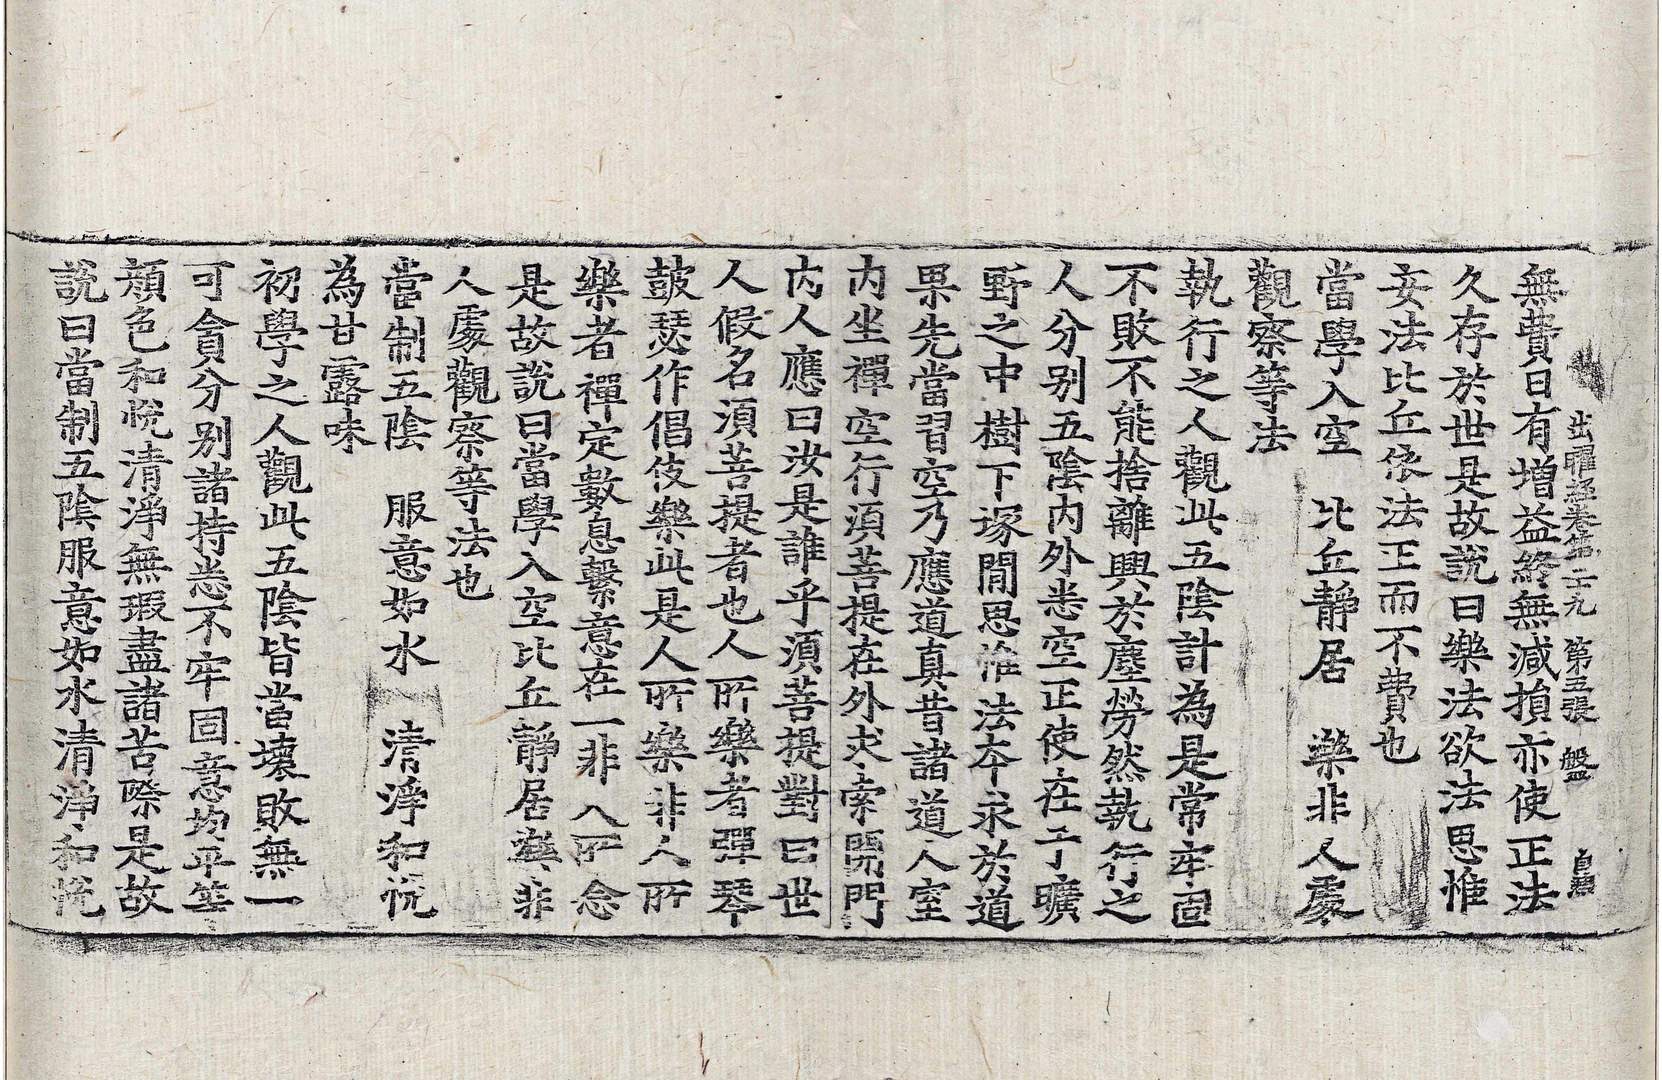 出曜經卷第二十九　第五張　盤
無費日有增益終無減損亦使正法
久存於世是故說曰樂法欲法思惟
安法比丘依法正而不費也
當學入空　比丘靜居　樂非人處
觀察等法
執行之人觀此五陰計為是常牢固
不敗不能捨離興於塵勞然執行之
人分別五陰內外悉空正使在于曠
野之中樹下塚間思惟法本求於道
果先當習空乃應道真昔諸道人室
內坐禪空行須菩提在外求索開門
內人應曰汝是誰乎須菩提對曰世
人假名須菩提者也人所樂者彈琴
鼓瑟作倡伎樂此是人所樂非人所
樂者禪定數息繫意在一非人所念
是故說曰當學入空比丘靜居樂非
人處觀察等法也
當制五陰　服意如水　清淨和悅
為甘露味
初學之人觀此五陰皆當壞敗無一
可貪分別諸持悉不牢固意均平等
顏色和悅清淨無瑕盡諸苦際是故
說曰當制五陰服意如水清淨和悅